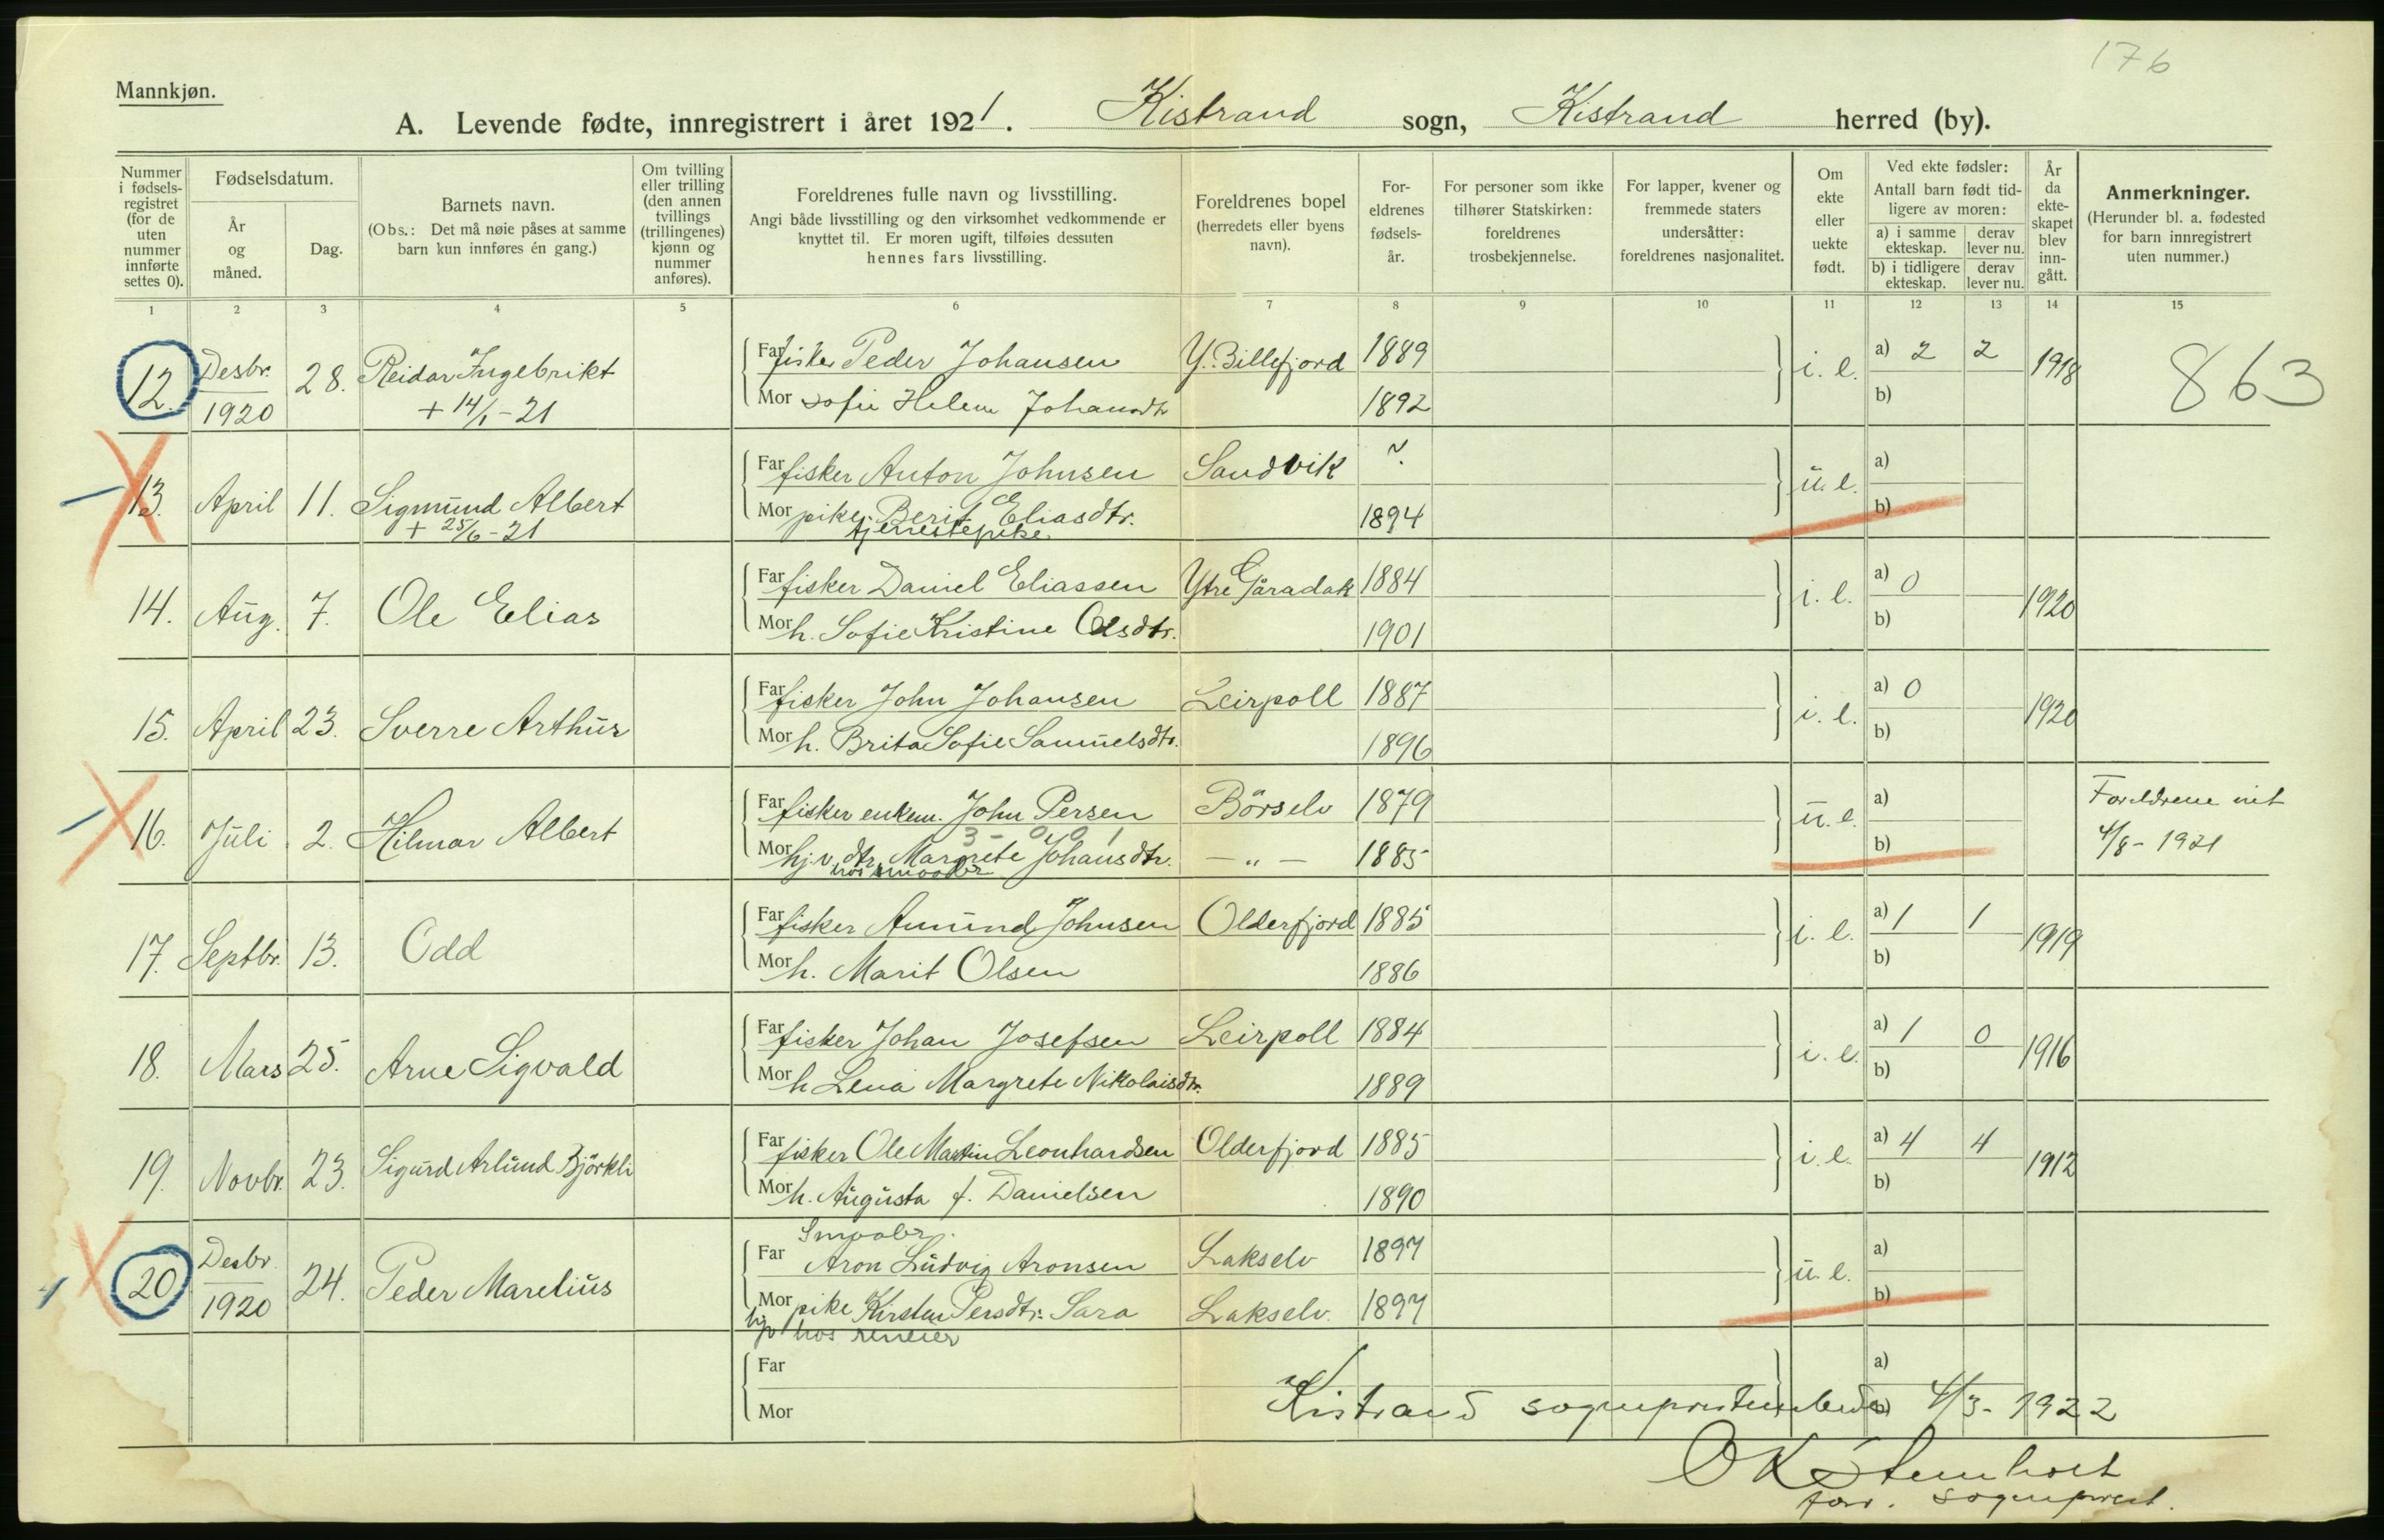 176
Mannkjøn.
A. Levende fødte, innregistrert i året 1921. Kistrand sogn, Kistrand herred (by).
Nummer i fødsels-registret (for de uten nummer innførte settes 0).
Fødselsdatum.
År og måned.
Dag.
Barnets navn.
(Obs.: Det må nøie påses at samme barn kun innføres én gang.)
Om tvilling eller trilling (den annen tvillings (trillingenes) kjønn og nummer anføres).
Foreldrenes fulle navn og livsstilling.
Angi både livsstilling og den virksomhet vedkommende er knyttet til. Er moren ugift, tilføies dessuten hennes fars livsstilling.
Foreldrenes bopel (herredets eller byens navn).
For-eldrenes fødsels-år.
For personer som ikke tilhører Statskirken: foreldrenes trosbekjennelse.
For lapper, kvener og fremmede staters undersåtter: foreldrenes nasjonalitet.
Om ekte eller uekte født.
Ved ekte fødsler:
Antall barn født tid-ligere av moren:
a) i samme ekteskap. derav lever nu.
b) i tidligere ekteskap. derav lever nu.
År da ekte-skapet blev inn-gått.
Anmerkninger.
(Herunder bl. a. fødested for barn innregistrert uten nummer.)
1 2 3 4 5 6 7 8 9 10 11 12 13 14 15
12. Desbr. 1920 28. Reidar Ingebrikt
+ 14/1-21
Far fisker Peder Johansen Y. Billefjord 1889 i. e. a) 2 2 1918 863
Mor Sofie Helene Johansdtr 1892 b)
13. April 11. Sigmund Albert
+ 25/6-21
Far fisker Anton Johnsen Sandvik ?. u. e. a)
Mor pike. Berit Eliasdtr. 1894 b)
tjenestepike.
14. Aug. 7. Ole Elias
Far fisker Daniel Eliassen Ytre Gåradak 1884 i. e. a) 0 1920
Mor h. Sofie Kristine Olsdtr. 1901 b)
15. April 23. Sverre Arthur
Far fisker John Johansen Leirpoll 1887 i. e. a) 0 1920
Mor h. Brita Sofie Samuelsdtr. 1896 b)
16. Juli 2. Hilmar Albert
Far fisker enkem. John Persen Börselv 1879 u. e. a) Foreldrene viet
3 - 0 0 1
Mor hj.v. dtr. Margrete Johansdtr. — „ — 1885 b) 4/8 - 1921
hos småbr
17. Septbr. 13. Odd
Far fisker Amund Johnsen Olderfjord 1885 i. e. a) 1 1 1919
Mor h. Marit Olsen 1886 b)
18. Mars 25. Arne Sigvald
Far fisker Johan Josefsen Leirpoll 1884 i. e. a) 1 0 1916
Mor h Lena Margrete Nikolaisdtr. 1889 b)
19. Novbr. 23. Sigurd Arlund Björkli
Far fisker Ole Martin Leonhardsen Olderfjord 1885 i. e. a) 4 4 1912
Mor h. Augusta f. Danielsen 1890 b)
20 Desbr. 1920 24. Peder Marelius
Småbr.
Far Aron Ludvig Aronsen Lakselv 1897 u. e. a)
Mor pike Kirsten Persdtr. Sara Lakselv. 1897 b)
hj hos reneier
Far a)
Mor
Kistrand sogneprestembede 4/3 - 1922
O K Stenholt
forr. sogneprest.